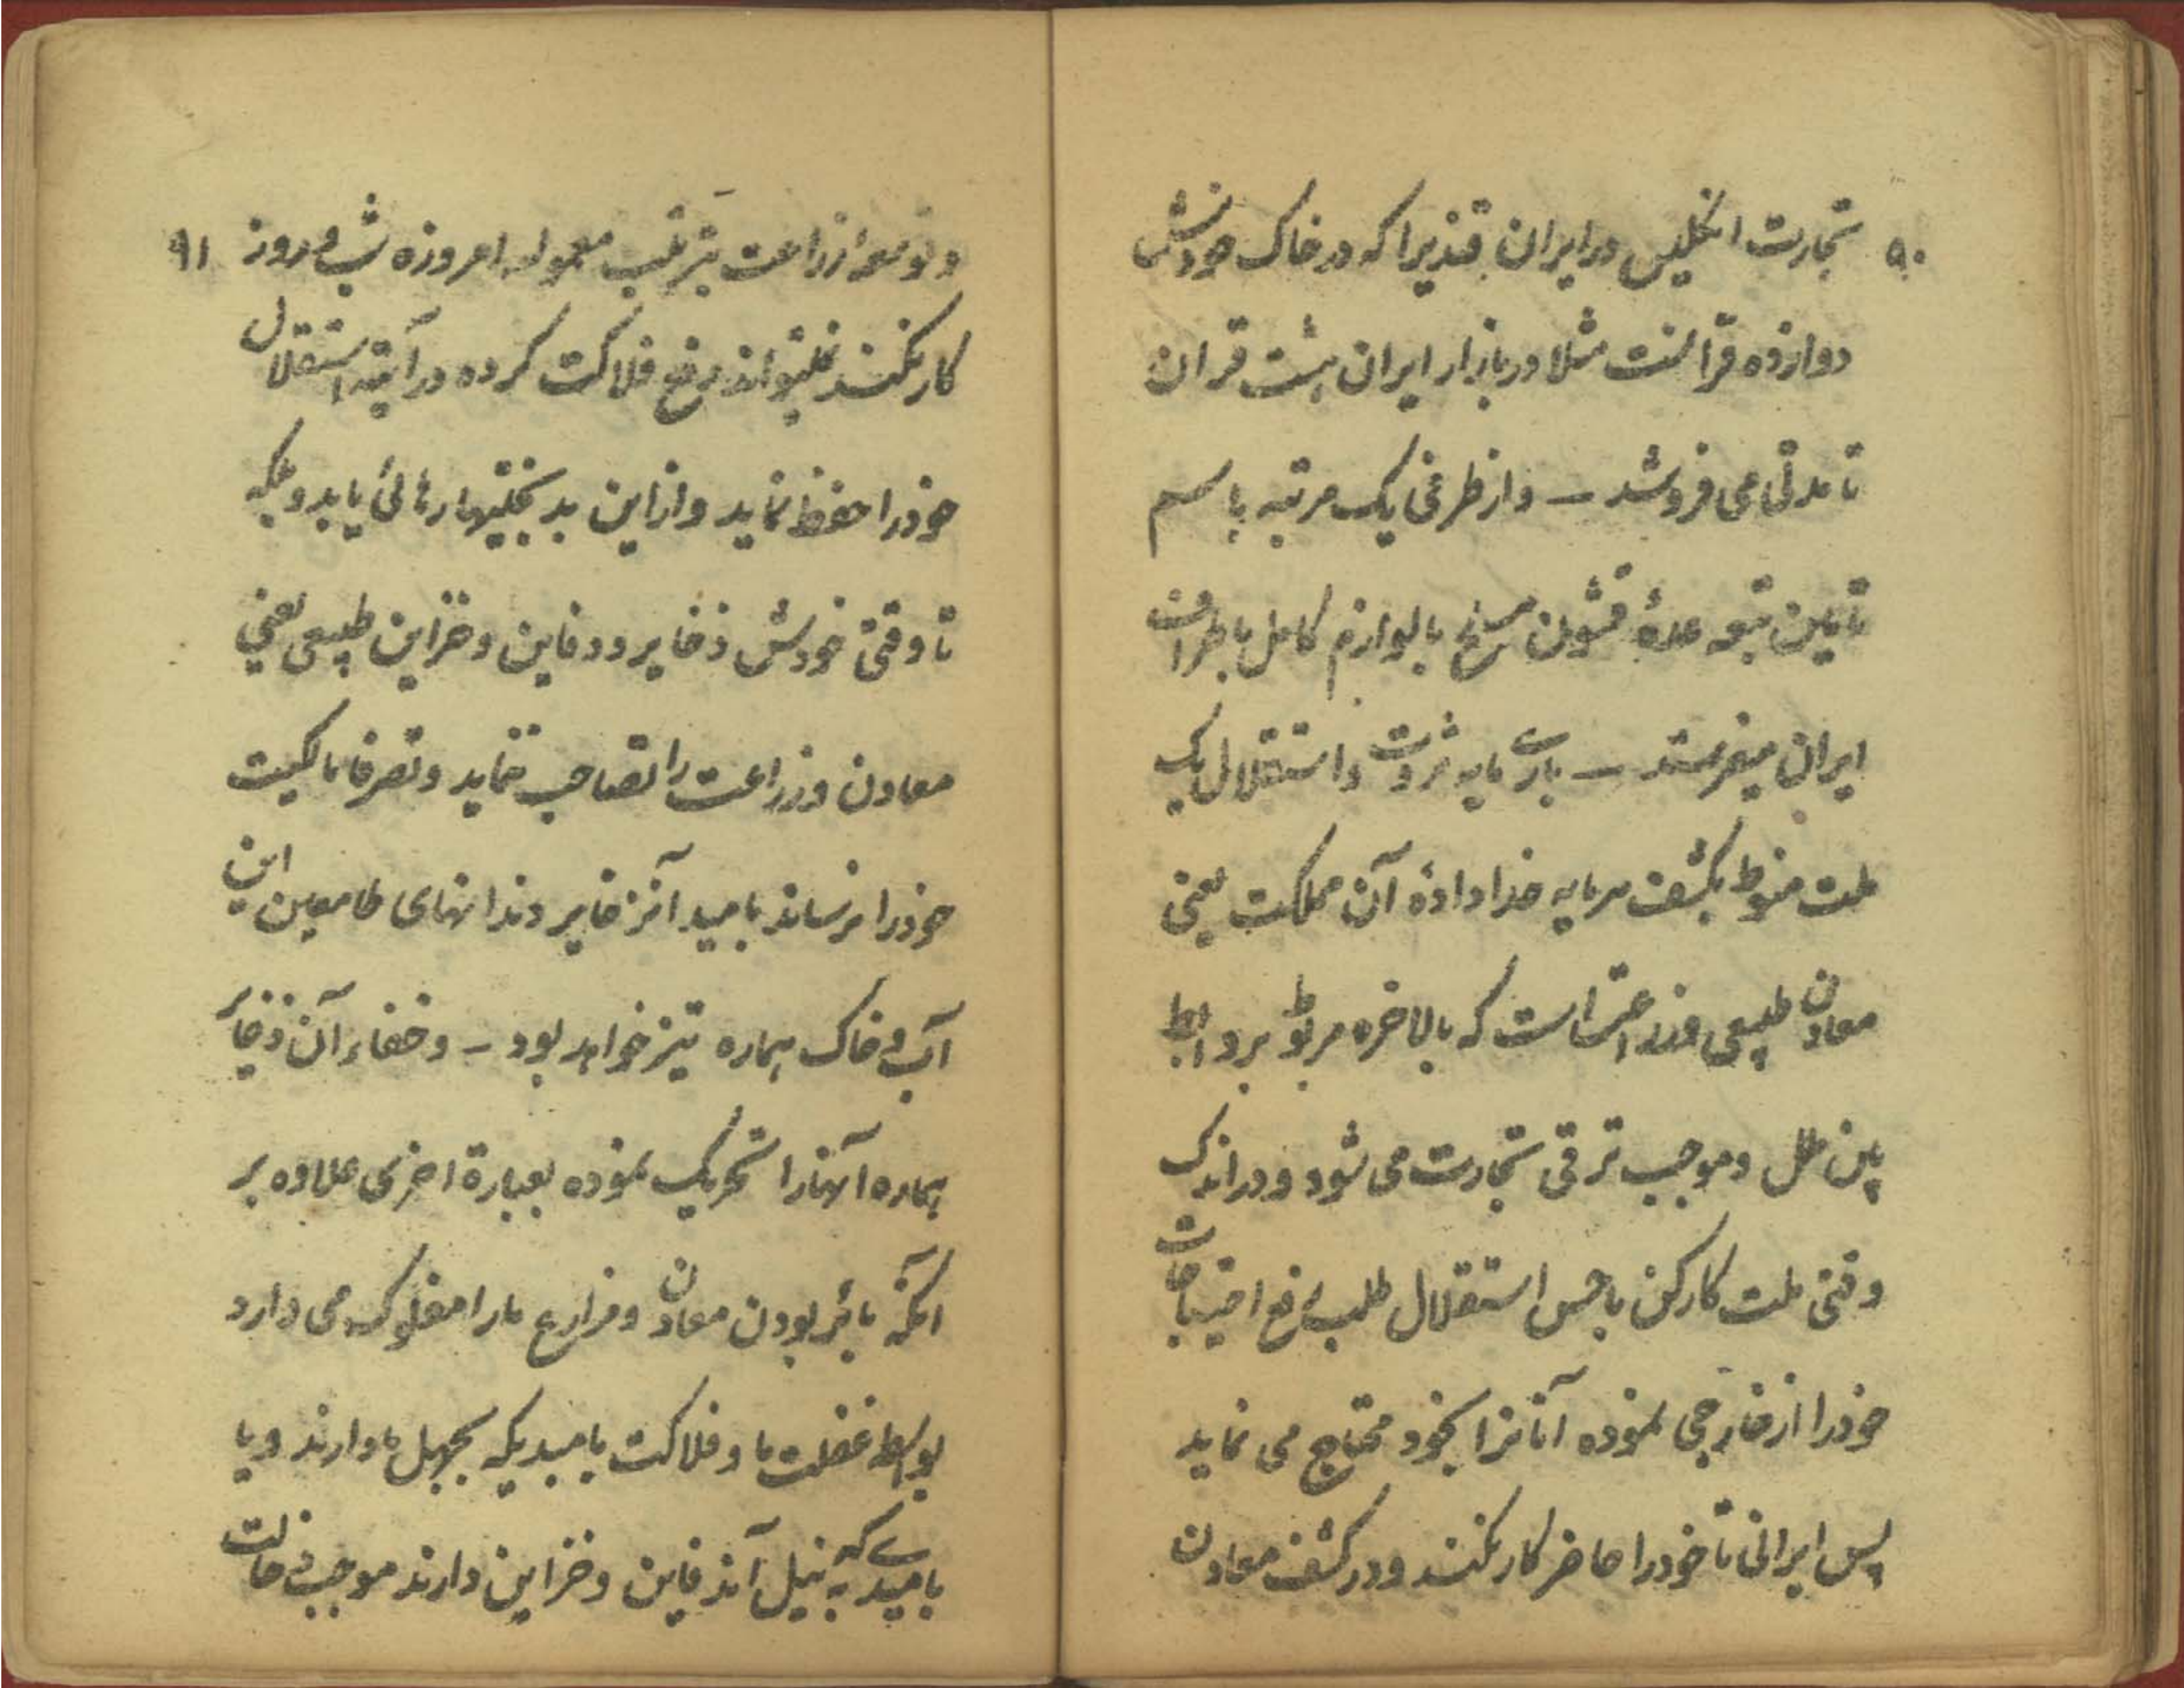 ۹۰
تجارت انگلیس در ایران قندیرا که در خاک خودش
دوازده قرانست مثلا در بازار ایران هشت قران
تا مدتی می فروشد – و از طرفی یک مرتبه باسم
تامین تبعه عدهٔ قشون سرخ بالوازم کامل باطراف
ایران میفرستد – باری پایه ثروت و استقلال یک
ملت منوط بکشف سرمایه خدا دادهٔ آن مملکت یعنی
معادن طبیعی و زراعتست که بالاخره مربوط بروابط
بین ملل و موجب ترقی تجارت می شود و در اندک
وقتی ملت کارکن باحس استقلال طلب رفع احتیاجات
خود را از خارجی نموده آنانرا بخود محتاج می نماید
پس ایرانی تا خود را حاضر کار نکند و در کشف معادن
۹۱
و توسعه زراعت بترتیب معموله امروزه شب و روز
کار نکند نمیتواند رفع فلاکت کرده در آتیه استقلال
خود را حفظ نماید و از این بدبختیها رهائی یابد و بلکه
تا وقتی خودش ذخایر و دفاین و خزاین طبیعی یعنی
معادن و زراعت را تصاحب ننماید و تصرفا مالکیت
خود را نرساند بامید آنذخایر دندانهای طامعین این
آب و خاک هماره تیز خواهد بود – و خفاء آن ذخایر
هماره آنهارا تحریک نموده بعبارة اخری علاوه بر
آنکه بائر بودن معادن و مزارع مارا مفلوک می دارد
بواسطه غفلت ما و فلاکت بامیدیکه بجهل ما دارند و یا
بامیدی که به نیل آندفاین و خزاین دارند موجب دخالت